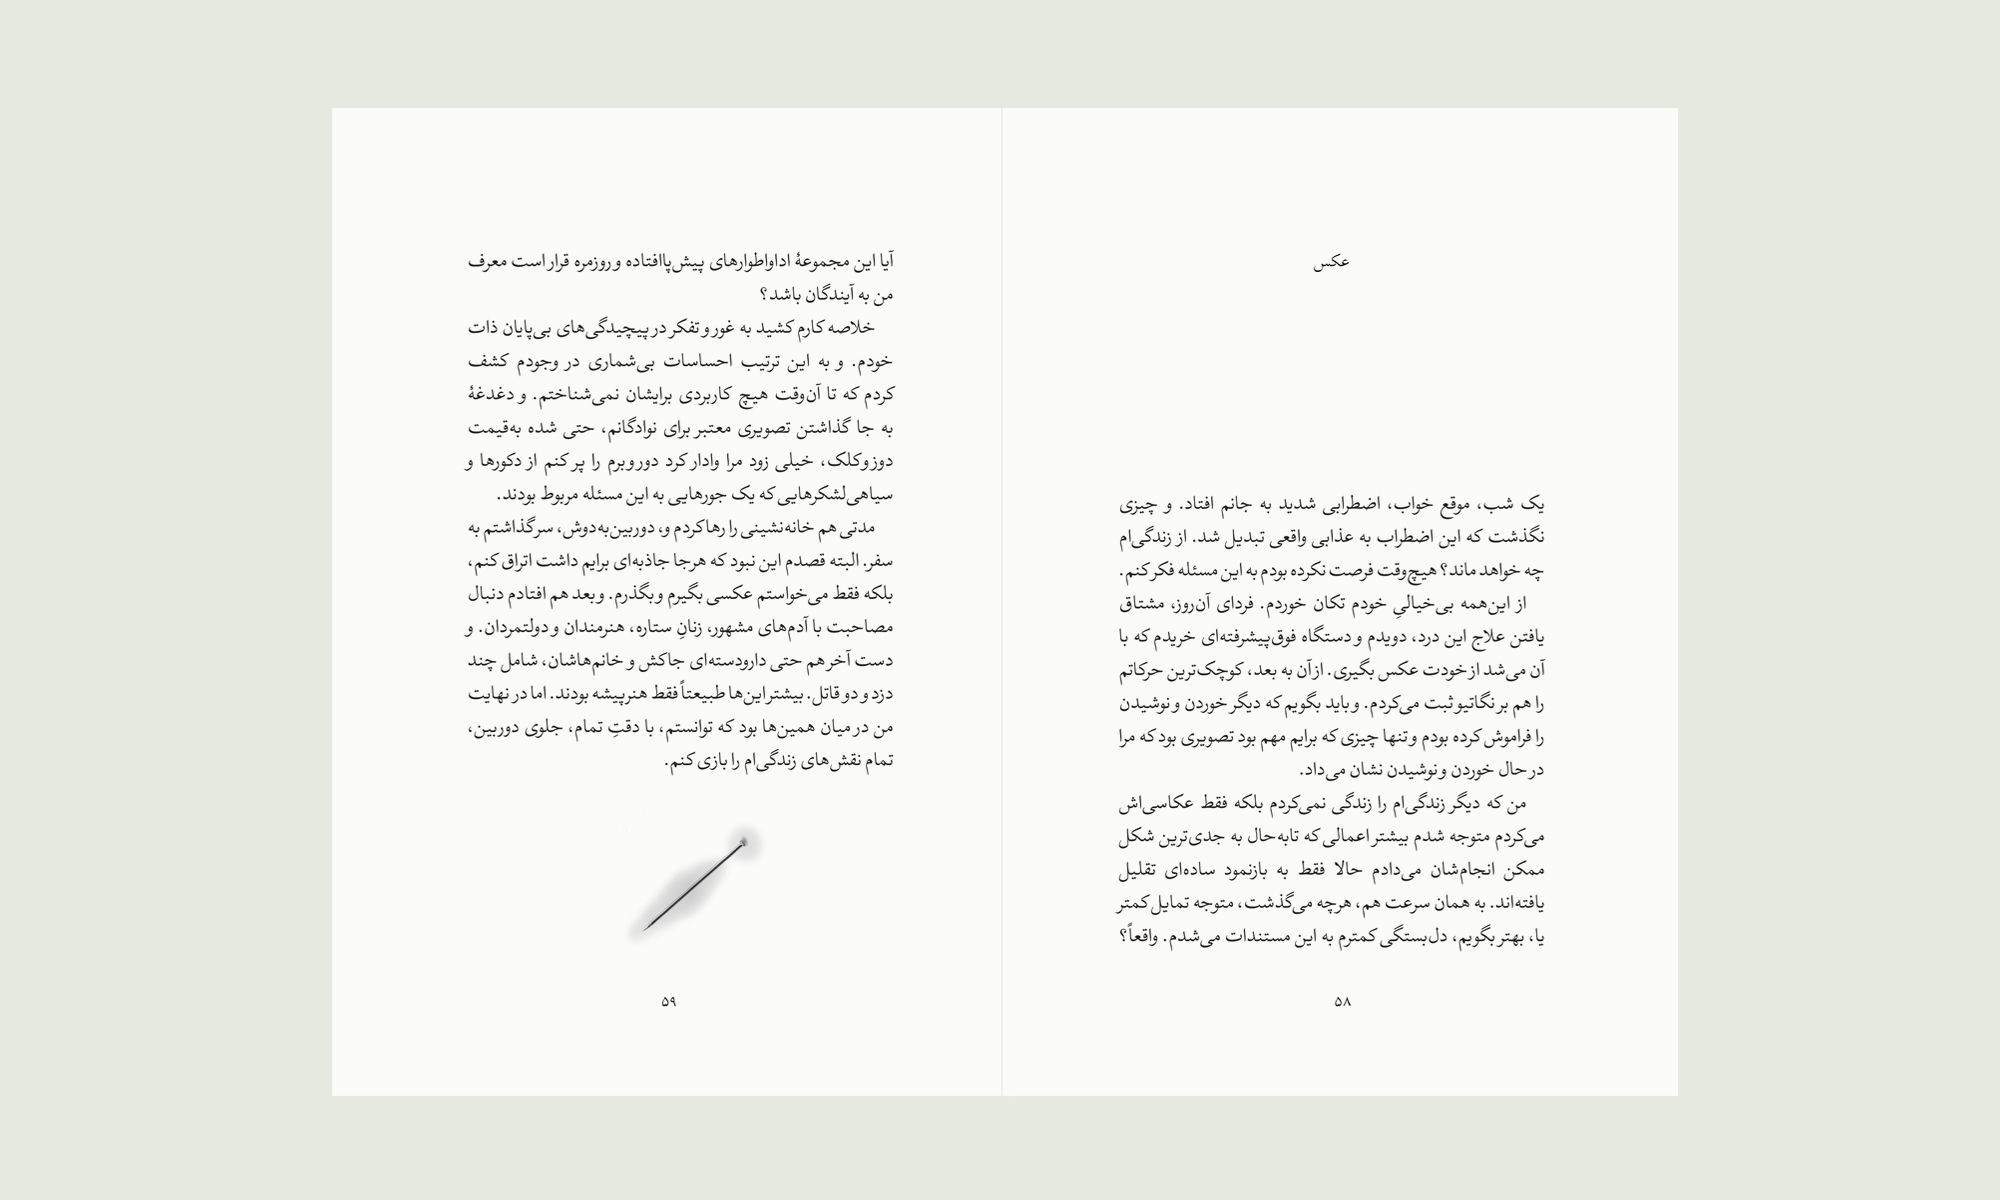 عکس
یک شب، موقع خواب، اضطرابی شدید به جانم افتاد. و چیزی
نگذشت که این اضطراب به عذابی واقعی تبدیل شد. از زندگی‌ام
چه خواهد ماند؟ هیچ‌وقت فرصت نکرده بودم به این مسئله فکر کنم.
از این‌همه بی‌خیالیِ خودم تکان خوردم. فردای آن‌روز، مشتاق
یافتن علاج این درد، دویدم و دستگاه فوق‌پیشرفته‌ای خریدم که با
آن می‌شد از خودت عکس بگیری. از آن به بعد، کوچک‌ترین حرکاتم
را هم بر نگاتیو ثبت می‌کردم. و باید بگویم که دیگر خوردن و نوشیدن
را فراموش کرده بودم و تنها چیزی که برایم مهم بود تصویری بود که مرا
در حال خوردن و نوشیدن نشان می‌داد.
من که دیگر زندگی‌ام را زندگی نمی‌کردم بلکه فقط عکاسی‌اش
می‌کردم متوجه شدم بیشتر اعمالی که تابه‌حال به جدی‌ترین شکل
ممکن انجام‌شان می‌دادم حالا فقط به بازنمود ساده‌ای تقلیل
یافته‌اند. به همان سرعت هم، هرچه می‌گذشت، متوجه تمایل کمتر
یا، بهتر بگویم، دل‌بستگی کمترم به این مستندات می‌شدم. واقعاً؟
۵۸
آیا این مجموعهٔ اداواطوارهای پیش‌پاافتاده و روزمره قرار است معرف
من به آیندگان باشد؟
خلاصه کارم کشید به غور و تفکر در پیچیدگی‌های بی‌پایان ذات
خودم. و به این ترتیب احساسات بی‌شماری در وجودم کشف
کردم که تا آن‌وقت هیچ کاربردی برایشان نمی‌شناختم. و دغدغهٔ
به جا گذاشتن تصویری معتبر برای نوادگانم، حتی شده به‌قیمت
دوزوکلک، خیلی زود مرا وادار کرد دوروبرم را پر کنم از دکورها و
سیاهی‌لشکرهایی که یک جورهایی به این مسئله مربوط بودند.
مدتی هم خانه‌نشینی را رها کردم و، دوربین‌به‌دوش، سر گذاشتم به
سفر. البته قصدم این نبود که هرجا جاذبه‌ای برایم داشت اتراق کنم،
بلکه فقط می‌خواستم عکسی بگیرم و بگذرم. و بعد هم افتادم دنبال
مصاحبت با آدم‌های مشهور، زنانِ ستاره، هنرمندان و دولتمردان. و
دست آخر هم حتی دارودسته‌ای جاکش و خانم‌هاشان، شامل چند
دزد و دو قاتل. بیشتر این‌ها طبیعتاً فقط هنرپیشه بودند. اما در نهایت
من در میان همین‌ها بود که توانستم، با دقتِ تمام، جلوی دوربین،
تمام نقش‌های زندگی‌ام را بازی کنم.
۵۹